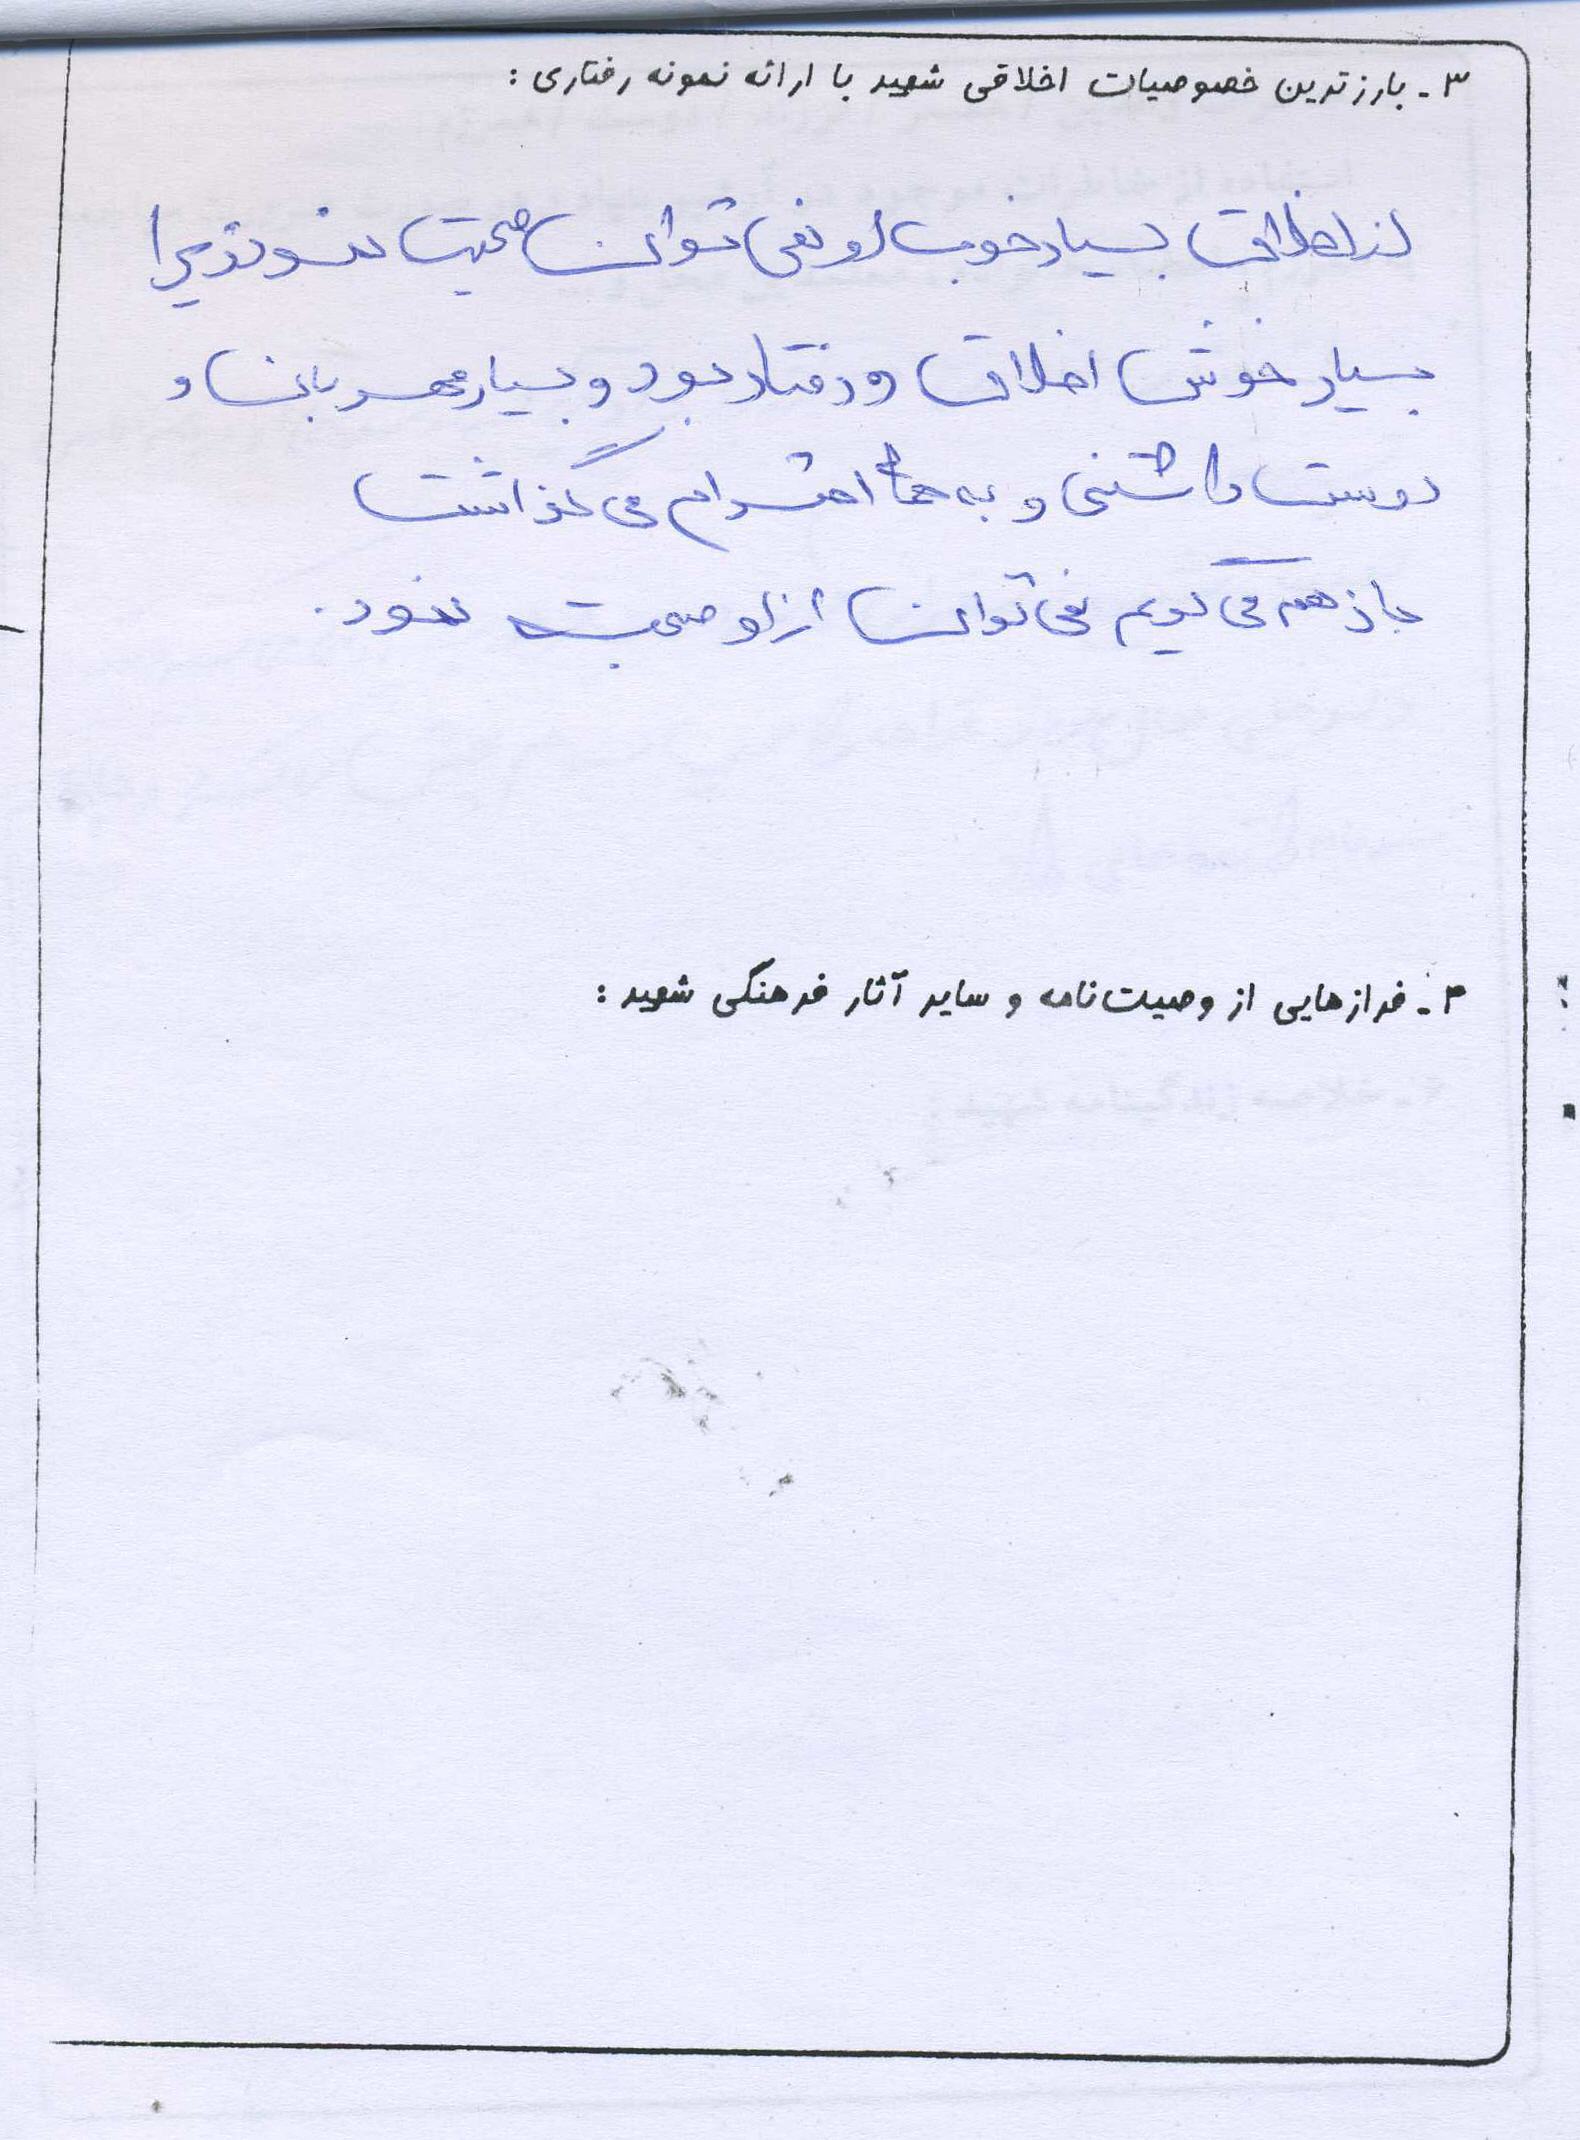 ۳ـ بارزترین خصوصیات اخلاقی شهید با ارائه نمونه رفتاری :
از اخلاق بسیار خوب او نمی توان صحبت نمود زیرا
بسیار خوش اخلاق و رفتار بود و بسیار مهربان و
دوست داشتنی و به ما احترام می گذاشت
باز هم می گویم نمی توان از او صحبت نمود.
۴ـ فرازهایی از وصیت‌نامه و سایر آثار فرهنگی شهید :